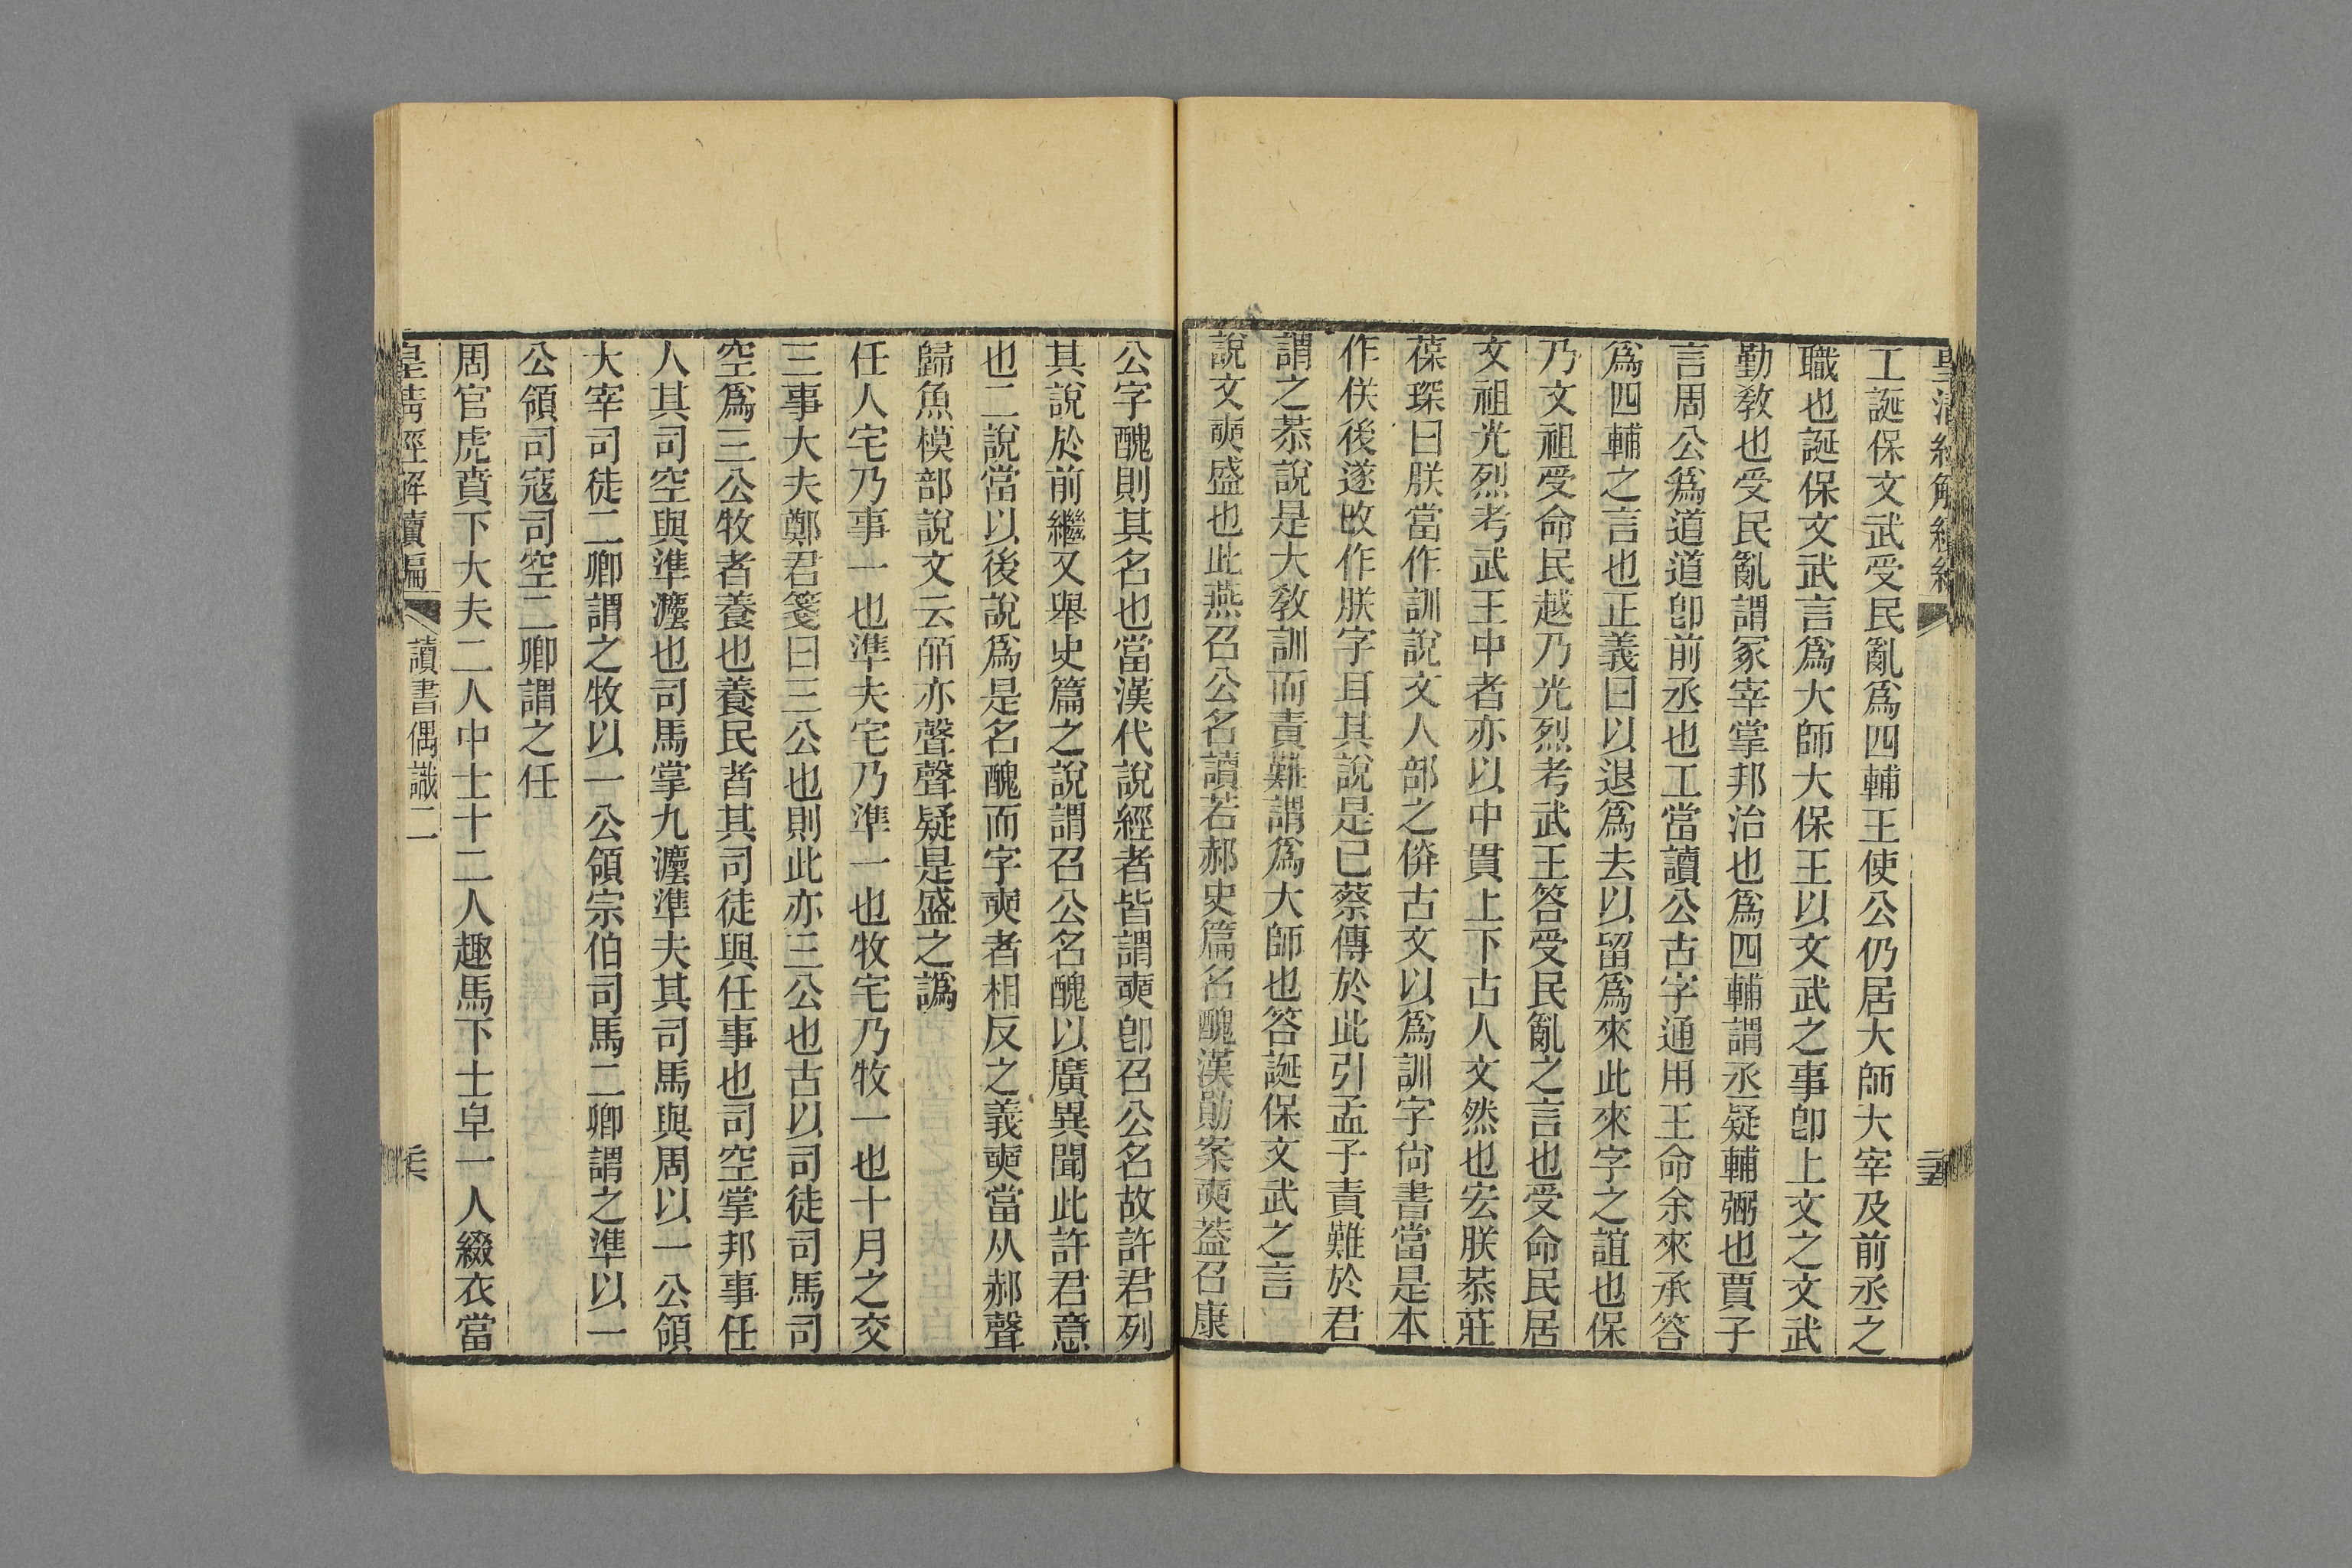 皇清經解續編
工誕保文武受民亂爲四輔王使公仍居大師大宰及前丞之
職也誕保文武言爲大師大保王以文武之事卽上文之文武
勤敎也受民亂謂冢宰掌邦治也爲四輔謂丞疑輔弼也賈子
言周公爲道道卽前丞也工當讀公古字通用王命余來承答
爲四輔之言也正義曰以退爲去以留爲來此來字之誼也保
乃文祖受命民越乃光烈考武王答受民亂之言也受命民居
文祖光烈考武王中者亦以中貫上下古人文然也宏朕恭莊
葆琛曰朕當作訓說文人部之㑞古文以爲訓字尙書當是本
作㑞後遂改作朕字耳其說是已蔡傳於此引孟子責難於君
謂之恭說是大敎訓而責難謂爲大師也答誕保文武之言
說文奭盛也此燕召公名讀若郝史篇名醜漢勛案奭葢召康
公字醜則其名也當漢代說經者皆謂奭卽召公名故許君列
其說於前繼又舉史篇之說謂召公名醜以廣異聞此許君意
也二說當以後說爲是名醜而字奭者相反之義奭當从郝聲
歸魚模部說文云皕亦聲聲疑是盛之譌
任人宅乃事一也準夫宅乃準一也牧宅乃牧一也十月之交
三事大夫鄭君箋曰三公也則此亦三公也古以司徒司馬司
空爲三公牧者養也養民者其司徒與任事也司空掌邦事任
人其司空與準灋也司馬掌九灋準夫其司馬與周以一公領
大宰司徒二卿謂之牧以一公領宗伯司馬二卿謂之準以一
公領司寇司空二卿謂之任
周官虎賁下大夫二人中士十二人趣馬下士皁一人綴衣當
皇清經解續編
讀書偶識二